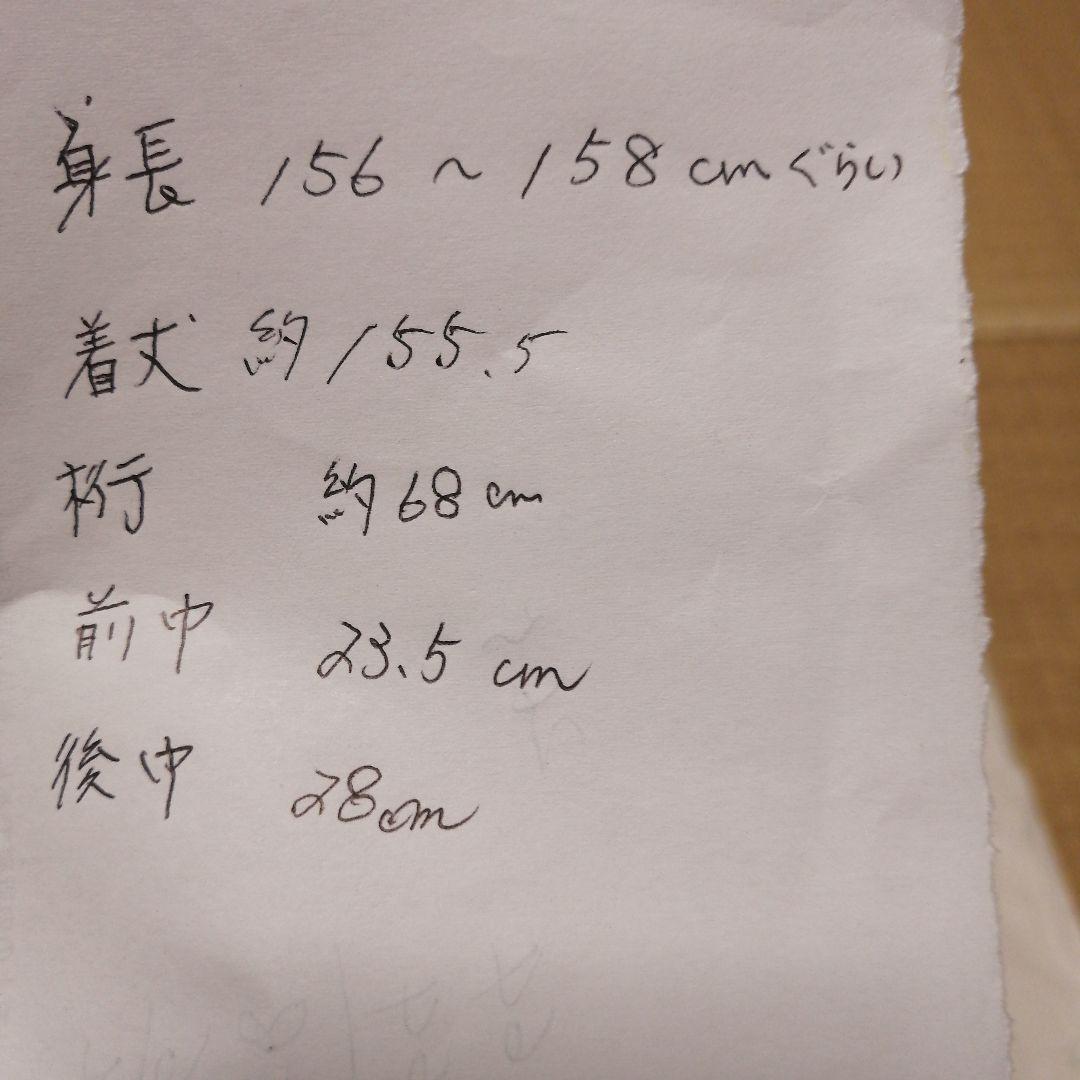 身長 156 ～ 158 cmぐらい
着丈 約 155.5
裄 約 68 cm
前巾 23.5 cm
後巾 28cm